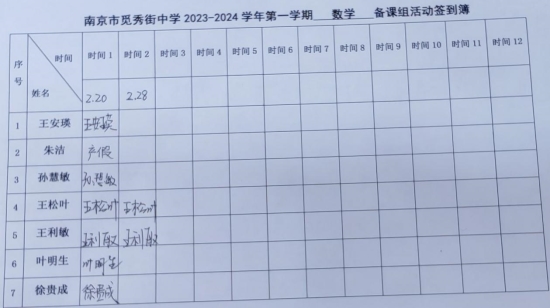 南京市觅秀街中学 2023-2024 学年第一学期 数学 备课组活动签到簿
序号 时间 姓名 时间 1 时间 2 时间 3 时间 4 时间 5 时间 6 时间 7 时间 8 时间 9 时间 10 时间 11 时间 12
2.20 2.28
1 王安瑛 王安瑛
2 朱洁 产假
3 孙慧敏 孙慧敏
4 王松叶 王松叶 王松叶
5 王利敏 王利敏 王利敏
6 叶明生 叶明生
7 徐贵成 徐贵成